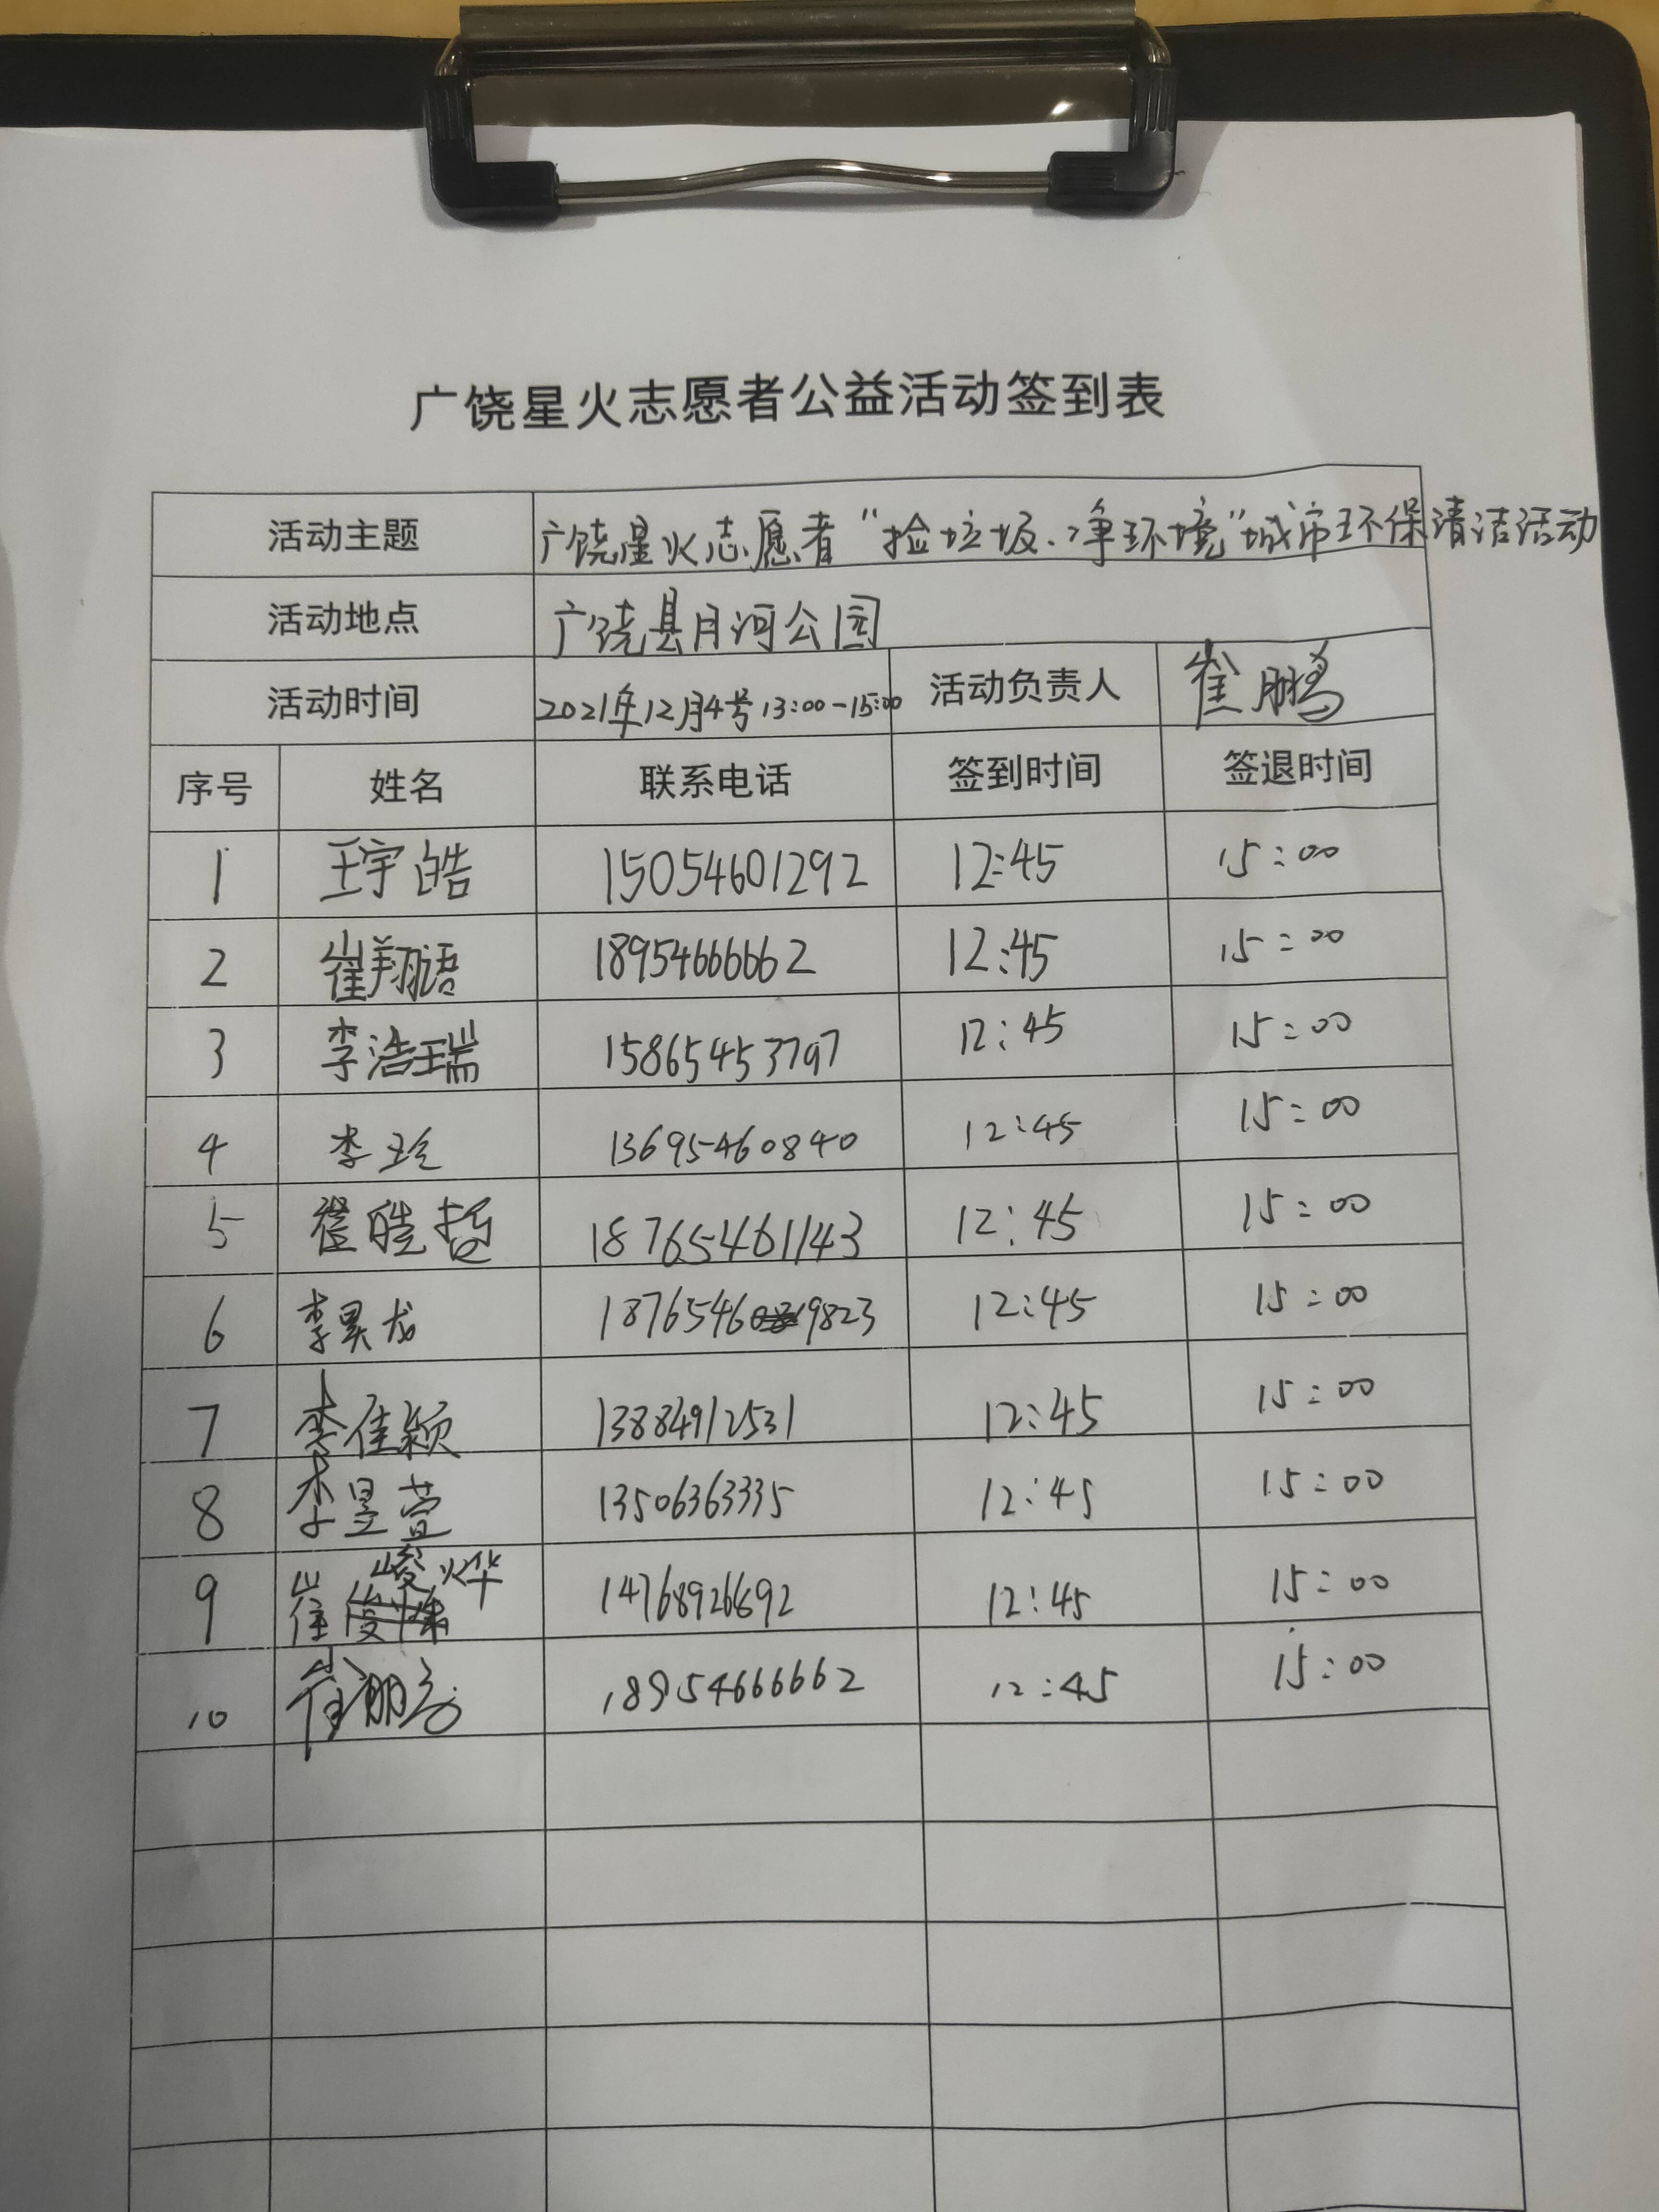 广饶星火志愿者公益活动签到表
活动主题 广饶星火志愿者“捡垃圾、净环境”城市环保清洁活动
活动地点 广饶县月河公园
活动时间 2021年12月4号 13:00-15:00 活动负责人 崔鹏
序号 姓名 联系电话 签到时间 签退时间
1 王宇皓 15054601292 12:45 15:00
2 崔翔语 18954666662 12:45 15:00
3 李浩瑞 15865453797 12:45 15:00
4 李玲 13695460840 12:45 15:00
5 崔皓哲 18765461143 12:45 15:00
6 李昊龙 18765469823 12:45 15:00
7 李佳颖 13884912531 12:45 15:00
8 李昱萱 13506363335 12:45 15:00
9 崔峻烨 14768926692 12:45 15:00
10 崔鹏 18954666662 12:45 15:00